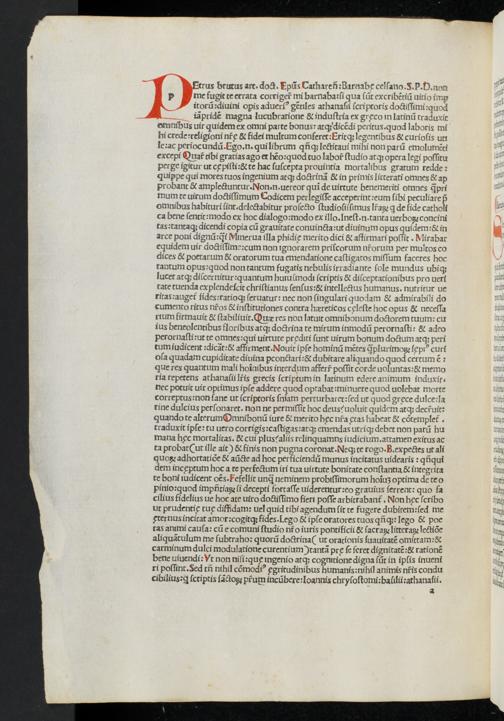 PEtrus brutus art. doct. Ep̃us Catharen̄: Barnabę celsano. S.P.D. non
me fugit te errata corriger̃ mi barnaba: quæ sũt excribẽtiũ uitio imp
itorũ: diuini opis aduerſ⁹ gẽtiles athanasii scriptoris doctissimi: quod
iãpridẽ magna lucubratione & industria ex gręco in latinũ traduxit
omnibus uir quidem ex omni parte bonus: atq; dicẽdi peritus: quod laboris mi
hi crede: religioni nr̃ę & fidei multum conferet: Eritq; legentibus & curiosis uti
le: ac periocundũ. Ego .n. qui librum q̃n̄q; lectitaui mihi non parũ emolumẽti
excepi Quaſ tibi gratias ago et hẽo: quod tuo labor̃ studio atq; opera legi possit: ut
perge igitur ut cępisti: & te hac suscepta prouintia mortalibus gratum redde:
quippe qui mores tuos ingenium atq; doctrinã & in primis litterati omnes & ap
probant & amplectuntur. Non .n. uereor qui de uirtute benemeriti omnes q̃pri
mum te uirum doctissimum Codicem perlegisse acceperint: eum sibi peculiarẽ p
omnibus habituri sint. delectabitur profecto studiosissimus lr̃arꝝ q̃ de fide catholi
ca bene sentit: modo ex hoc dialogo: modo ex illo. Inest .n. tanta uerborꝝ concini
tas: tantaq; dicendi copia cũ grauitate conuincta: ut diuinum opus quidem: & in
arce poni dignũ: q̃ Minerua illa phidię merito dici & affirmari possit. Mirabar
equidem uir doctissime: cum non ignorarem priscorum nr̃orum per multos co
dices & poetarum & oratorum tua emendatione castigatos missum faceres hoc
tantum opus: quod non tantum fugatis nebulis irradiante sole mundus ubiq;
lucet atq; discernitur quantum huiusmodi scriptis & disceptationibus pro ueri
tate tuenda explendescit christianus sensus: & intellectus humanus. nutritur ue
ritas: auget fides: ratioq; seruatur: nec non singulari quodam & admirabili do
cumento ritus nr̃os & institutiones contra hæreticos cęleste hoc opus & necessa
rium firmauit & stabiliuit. Quæ res non latuit omnibonum doctorem tuum: cu
ius beneolentibus floribus atq; doctrina te mirum inmodũ perornasti: & adeo
perornasti: ut te omnes: qui uirtute pręditi sunt uirum bonum doctum atq; peri
tum iudicent: dicãt: & affirment. Nouit ipse hominũ mẽtes q̃plurimorꝝ sępi⁹ curi
osa quadam cupiditate diuina pcontari: & dubitare aliquando quod certum ẽ:
que res quantum mali hoĩnibus interdum afferr̃ possit corde uoluntas: & memo
ria repetens athanasii lr̃is grecis scriptum in latinum edere animum induxit.
nec potuit uir optimus ipse addere quod optabat minuere quod uolebat morte
correptus: non sane ut scriptoris sñiam perturbaret: sed ut quod gręce dulce: la
tine dulcius personaret. non ne permissit hoc deus? uoluit quidem atq; decreuit:
quando te alterum Omnibonũ iure & merito hęc nr̃a ętas habeat & cõtemplet.
traduxit ipse: tu uero corrigis: castigas: atq; emendas utriq; debet non parũ hu
mana hęc mortalitas. & cui plusꝰ alii relinquamus iudicium. attamen exitus ac
ta probat (ut ille ait) & finis non pugna coronat. Neq; te rogo. B. expectes ut ali
quorꝝ adhortatiõe & auctẽ ad hoc perficiendũ munus incitatus uidearis: q̃ si qui
dem inceptum hoc a te perfectum iri tua uirtute bonitate constantia & integrita
te boni iudicent oẽs. Fefellit unq̃ neminem probissimorum hoĩuꝝ optima de te o
pinio: quod impẽsiarꝝ si decepti fortasse uiderentur: eo grauius ferrent: quo fa
cilius fidelius ue hoc ate uiro doctissimo fieri posse arbitrabant̃. Non hęc scribo
ut prudentię tuę diffidam: uel quid tibi agendum sit te fugere dubitem: sed me
ęternus incitat amor: cogitq; fides. Lego & ipse oratores tuos q̃n̄q;: lego & poe
tas animi causa: & ẽ e comuni studio nr̃o iuris pontificii & sacrarꝝ litterarꝝ lectiõe
aliquãtulum me subtraho: quorũ doctrina (ut orationis suauitatẽ omittam: &
carminum dulci modulatione currentium) tantã prę se feret dignitatẽ: & rationẽ
bene uiuendi: Vt non nisi: quę ingenio atq; cognitione digna sũt in ipsis inueni
ri possint. Sed eñ nihil cõmodi⁹ ęgritudinibus humanis: nihil animis nr̃is condu
cibilius: q̃ scriptis sãctorꝝ pr̃um incũbere: Ioannis chrysostomi: basilii: athanasii.
a